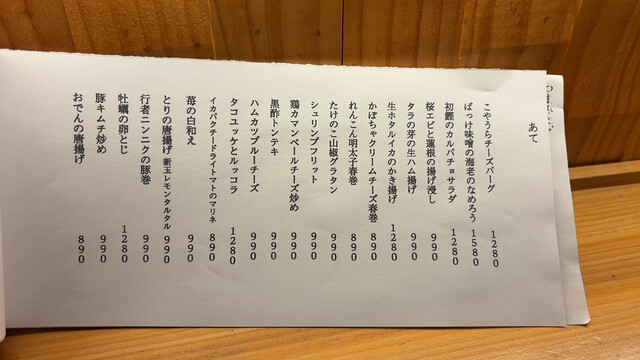 あて
こやうらチーズバーグ 1280
ばっけ味噌の海老のなめろう 1580
初鰹のカルパチョサラダ 1280
桜エビと蓮根の揚げ浸し 990
タラの芽の生ハム揚げ 990
生ホタルイカのかき揚げ 1280
かぼちゃクリームチーズ春巻 890
れんこん明太子春巻 890
たけのこ山椒グラタン 990
シュリンプフリット 990
鶏カマンベールチーズ炒め 990
黒酢トンテキ 990
ハムカツブルーチーズ 990
タコユッケとルッコラ 1280
イカパクチードライトマトのマリネ 890
苺の白和え 990
とりの唐揚げ 新玉レモンタルタル 990
行者ニンニクの豚巻 990
牡蠣の卵とじ 1280
豚キムチ炒め 990
おでんの唐揚げ 890